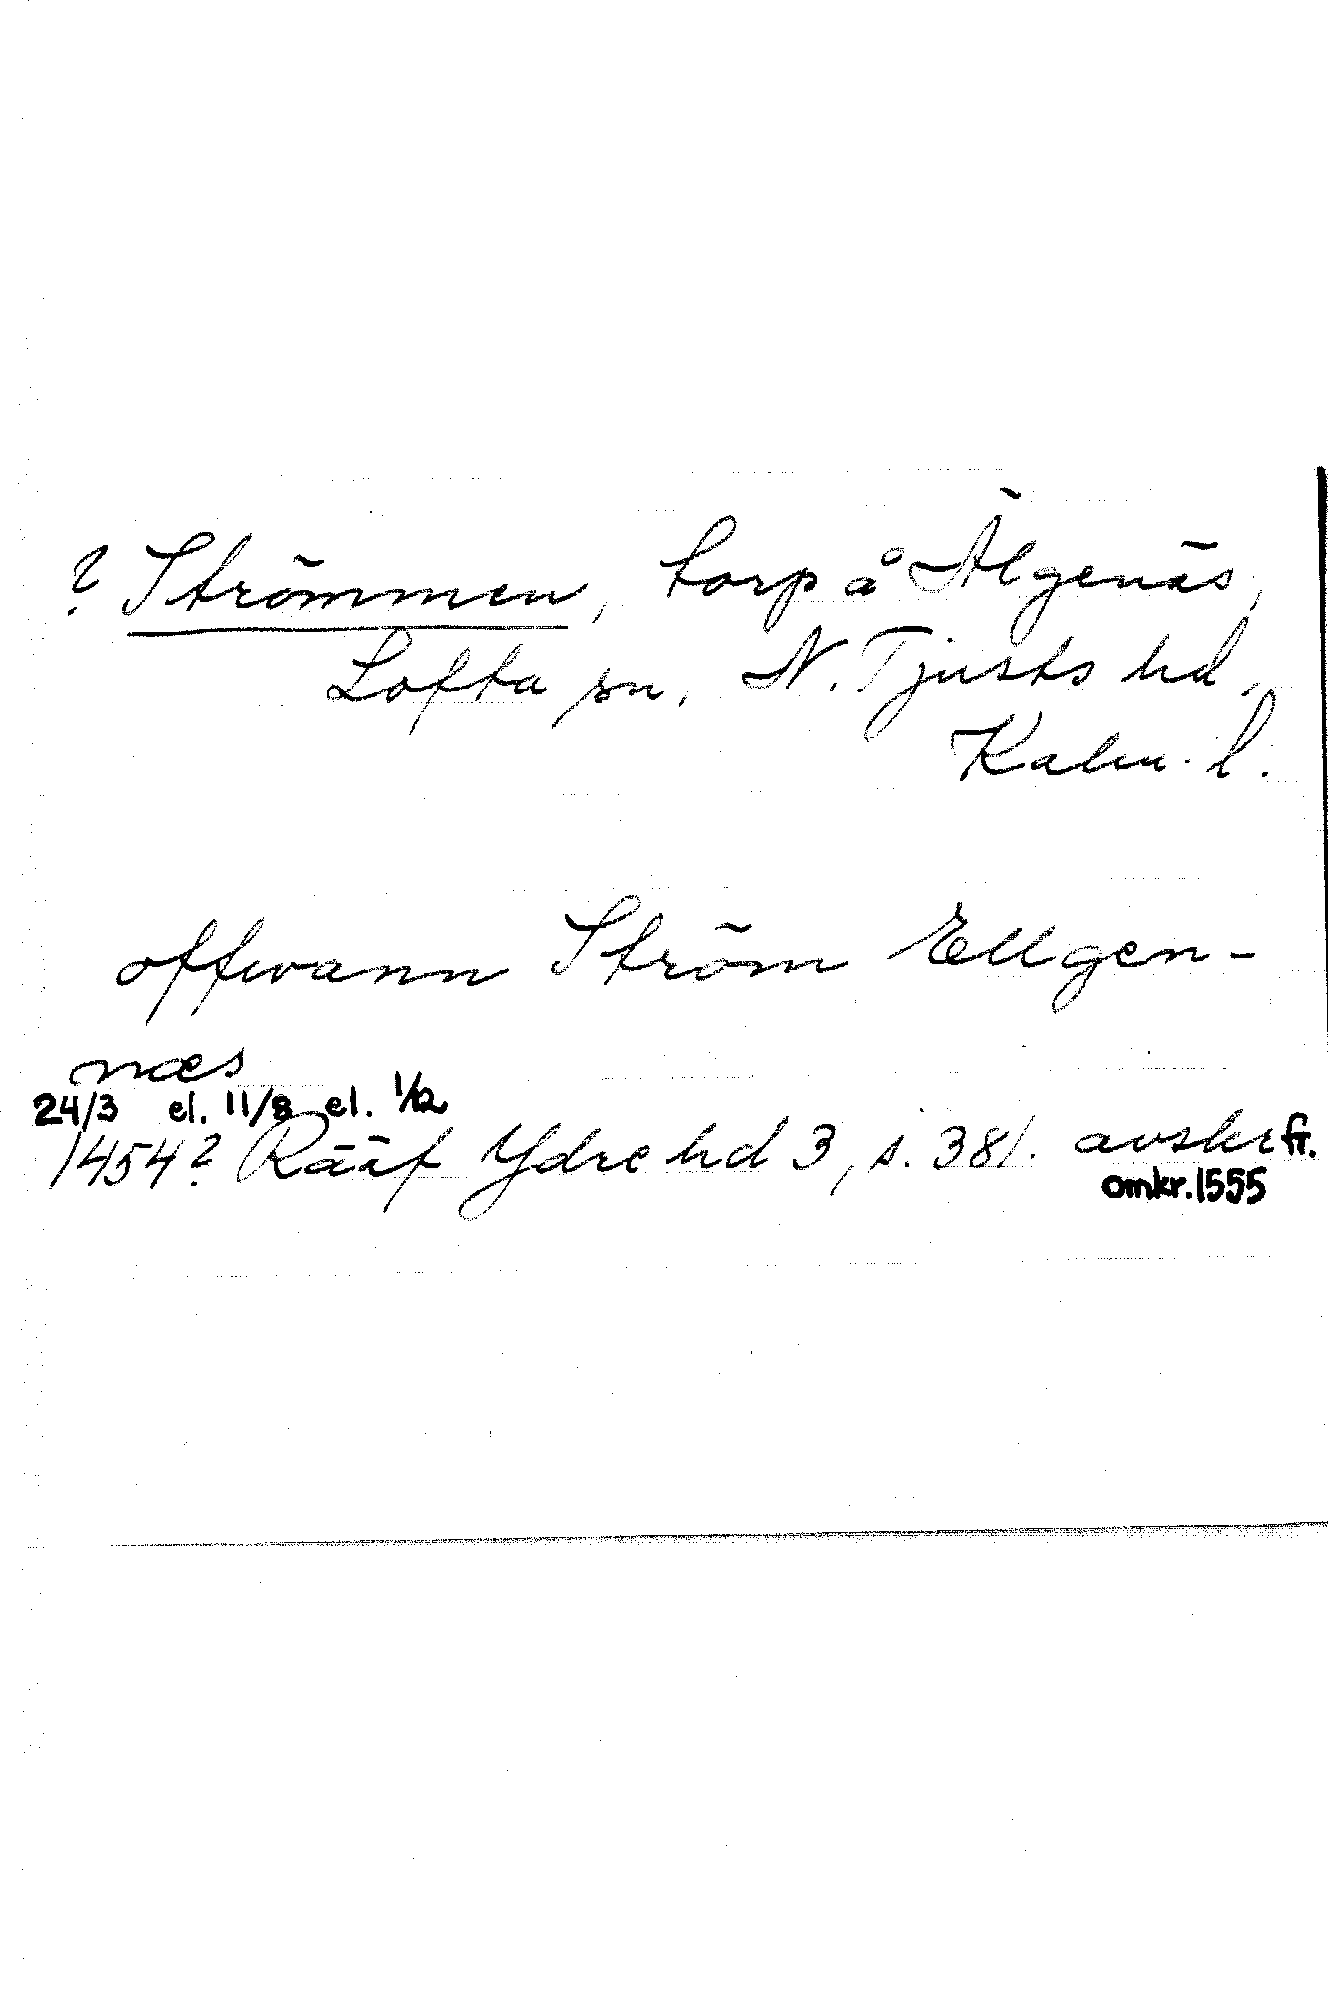 ? Strömmen, torp å Älgenäs,
Lofta sn, N. Tjusts hd,
Kalm. l.
offwann Ström Ellgen-
næs
24/3 el. 11/8 el. 1/12
1454? Rääf Ydre hd 3, s. 381. avskr fr.
omkr. 1555